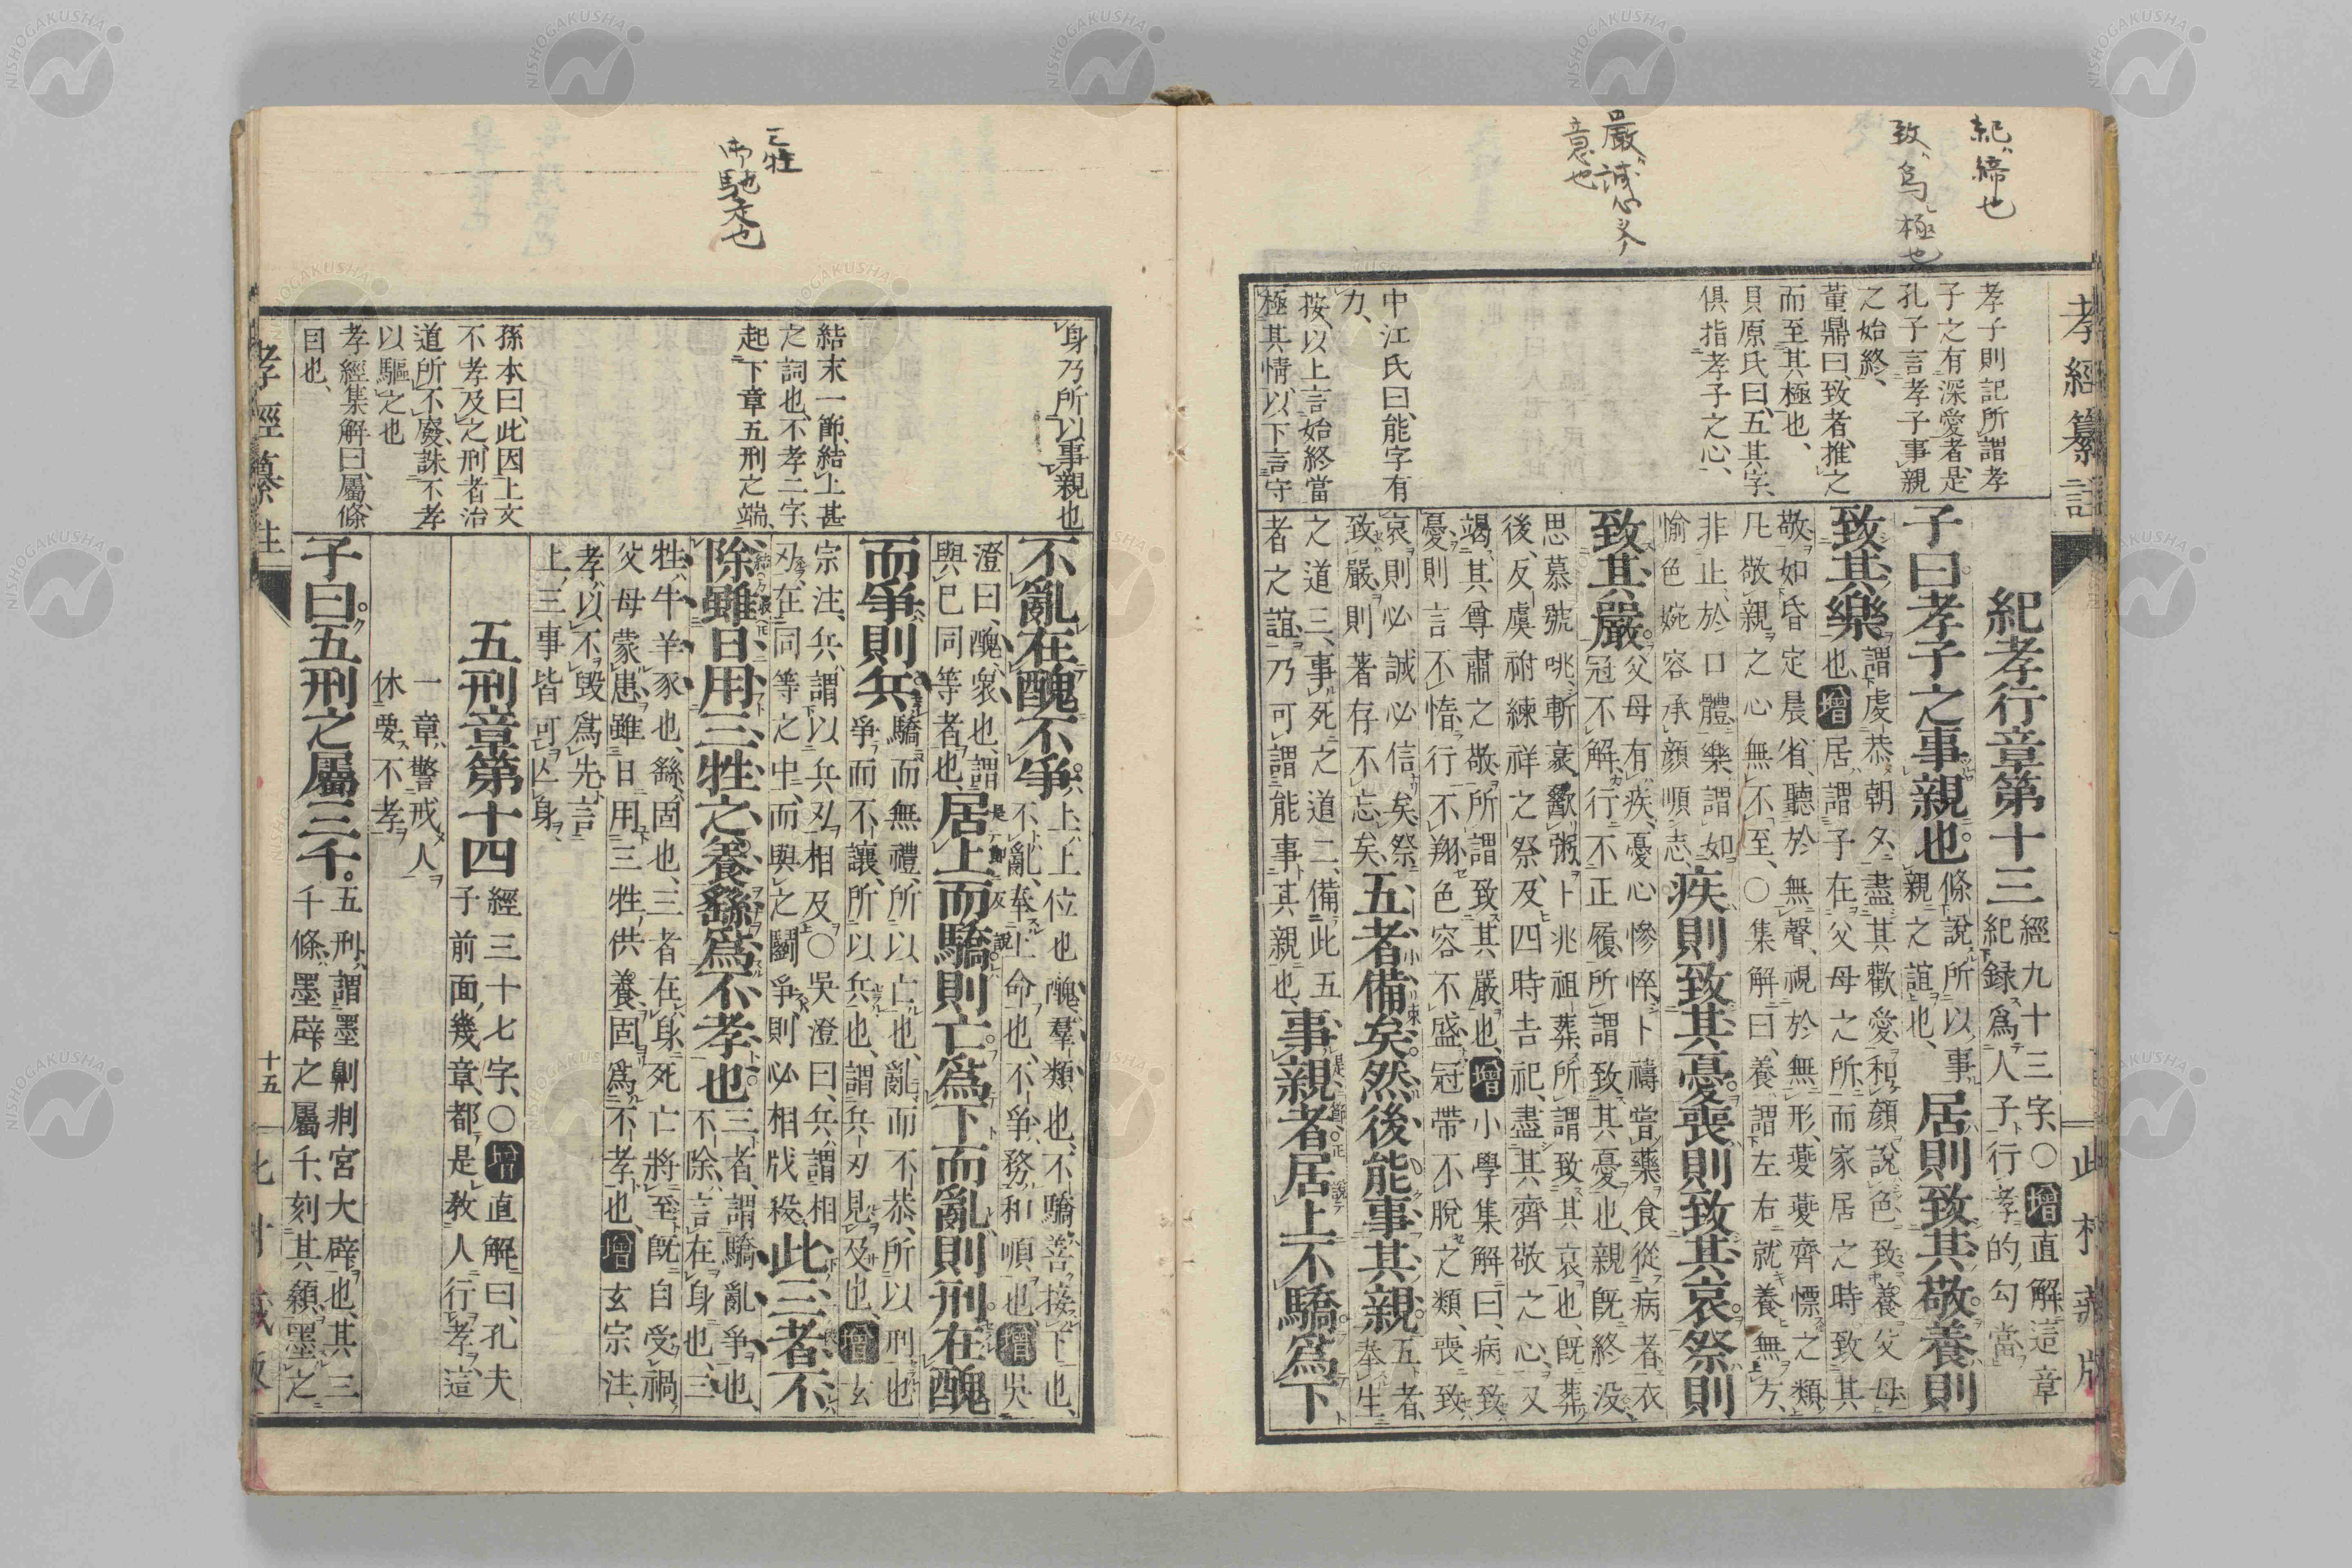 紀、締也
致、爲極也
嚴、誠心
意也
孝經纂註
此村藏版
孝子則記所謂孝
子之有深愛者是
孔子言孝子事親
之始終、
董鼎曰、致者、推之
而至其極也、
貝原氏曰、五其字、
俱指孝子之心、
中江氏曰、能字有
力、
按、以上言始終當
極其情、以下言守
紀孝行章第十三 經九十三字、〇增直解、這章
紀録爲人子行孝的勾當
子曰孝子之事親也 條說所以事
親之誼也、 居則致其敬養則
致其樂 謂虔恭朝夕、盡其歡愛、和顏說色、致養父母
也、增居謂子在父母之所、而家居之時、致其
敬如昏定晨省、聽於無聲、視於無形、夔夔齊慄之類
凡敬親之心、無不至、〇集解曰、養謂左右就養無方、
非止於口體、樂謂如
愉色婉容承顏順志、 疾則致其憂喪則致其哀祭則
致其嚴 父母有疾、憂心慘悴、卜禱嘗藥食從病者、衣
冠不解、行不正履、所謂致其憂也、親既終没、
思慕號咷、斬衰歠粥、卜兆祖葬、所謂致其哀也、既葬
後、反虞祔練祥之祭、及四時吉祀、盡其齊敬之心、又
竭其尊肅之敬、所謂致其嚴也、增小學集解曰、病致
憂、則言不惰、行不翔、色容不盛、冠帶不脫之類、喪致
哀、則必誠必信矣、祭
致嚴、則著存不忘矣、 五者備矣然後能事其親 五者、
奉生
之道三、事死之道二、備此五
者之誼、乃可謂能事其親也、 事親者居上不驕爲下
三牲
御馳走也
身乃所以事親也
結末一節、結上甚
之詞也、不孝二字、
起下章五刑之端、
孫本曰、此因上文
不孝及之、刑者治
道所不廢、誅不孝
以驅之也
孝經集解曰、屬、條
目也、
不亂在醜不爭 上、上位也、醜、羣類也、不驕、善接下也、
不亂、奉上命也、不爭、務和順也、增吳
澄曰、醜、衆也、謂
與己同等者也、 居上而驕則亡爲下而亂則刑在醜
而爭則兵 驕而無禮、所以亡也、亂而不恭、所以刑也
爭而不讓、所以兵也、謂兵刃見及也、增玄
宗注、兵、謂以兵刃相及、〇吳澄曰、兵、謂相
刃、在同等之中、而與之鬭爭、則必相戕殺、 此三者不
除雖日用三牲之養繇爲不孝也 三者、謂驕亂爭也、
不除、言在身也、三
牲、牛羊豕也、繇、固也、三者在身、死亡將至、既自受禍、
父母蒙患、雖日用三牲、供養、固爲不孝也、增玄宗注、
孝以不毀爲先、言
上三事皆可亾身、
五刑章第十四 經三十七字、〇增直解曰、孔夫
子前面幾章、都是教人行孝、這
一章、警戒人
休要不孝
子曰五刑之屬三千。 五刑、謂墨劓剕宮大辟也、其三
千條、墨辟之屬千、刻其顙、墨之
孝經纂註
十五
此村藏版